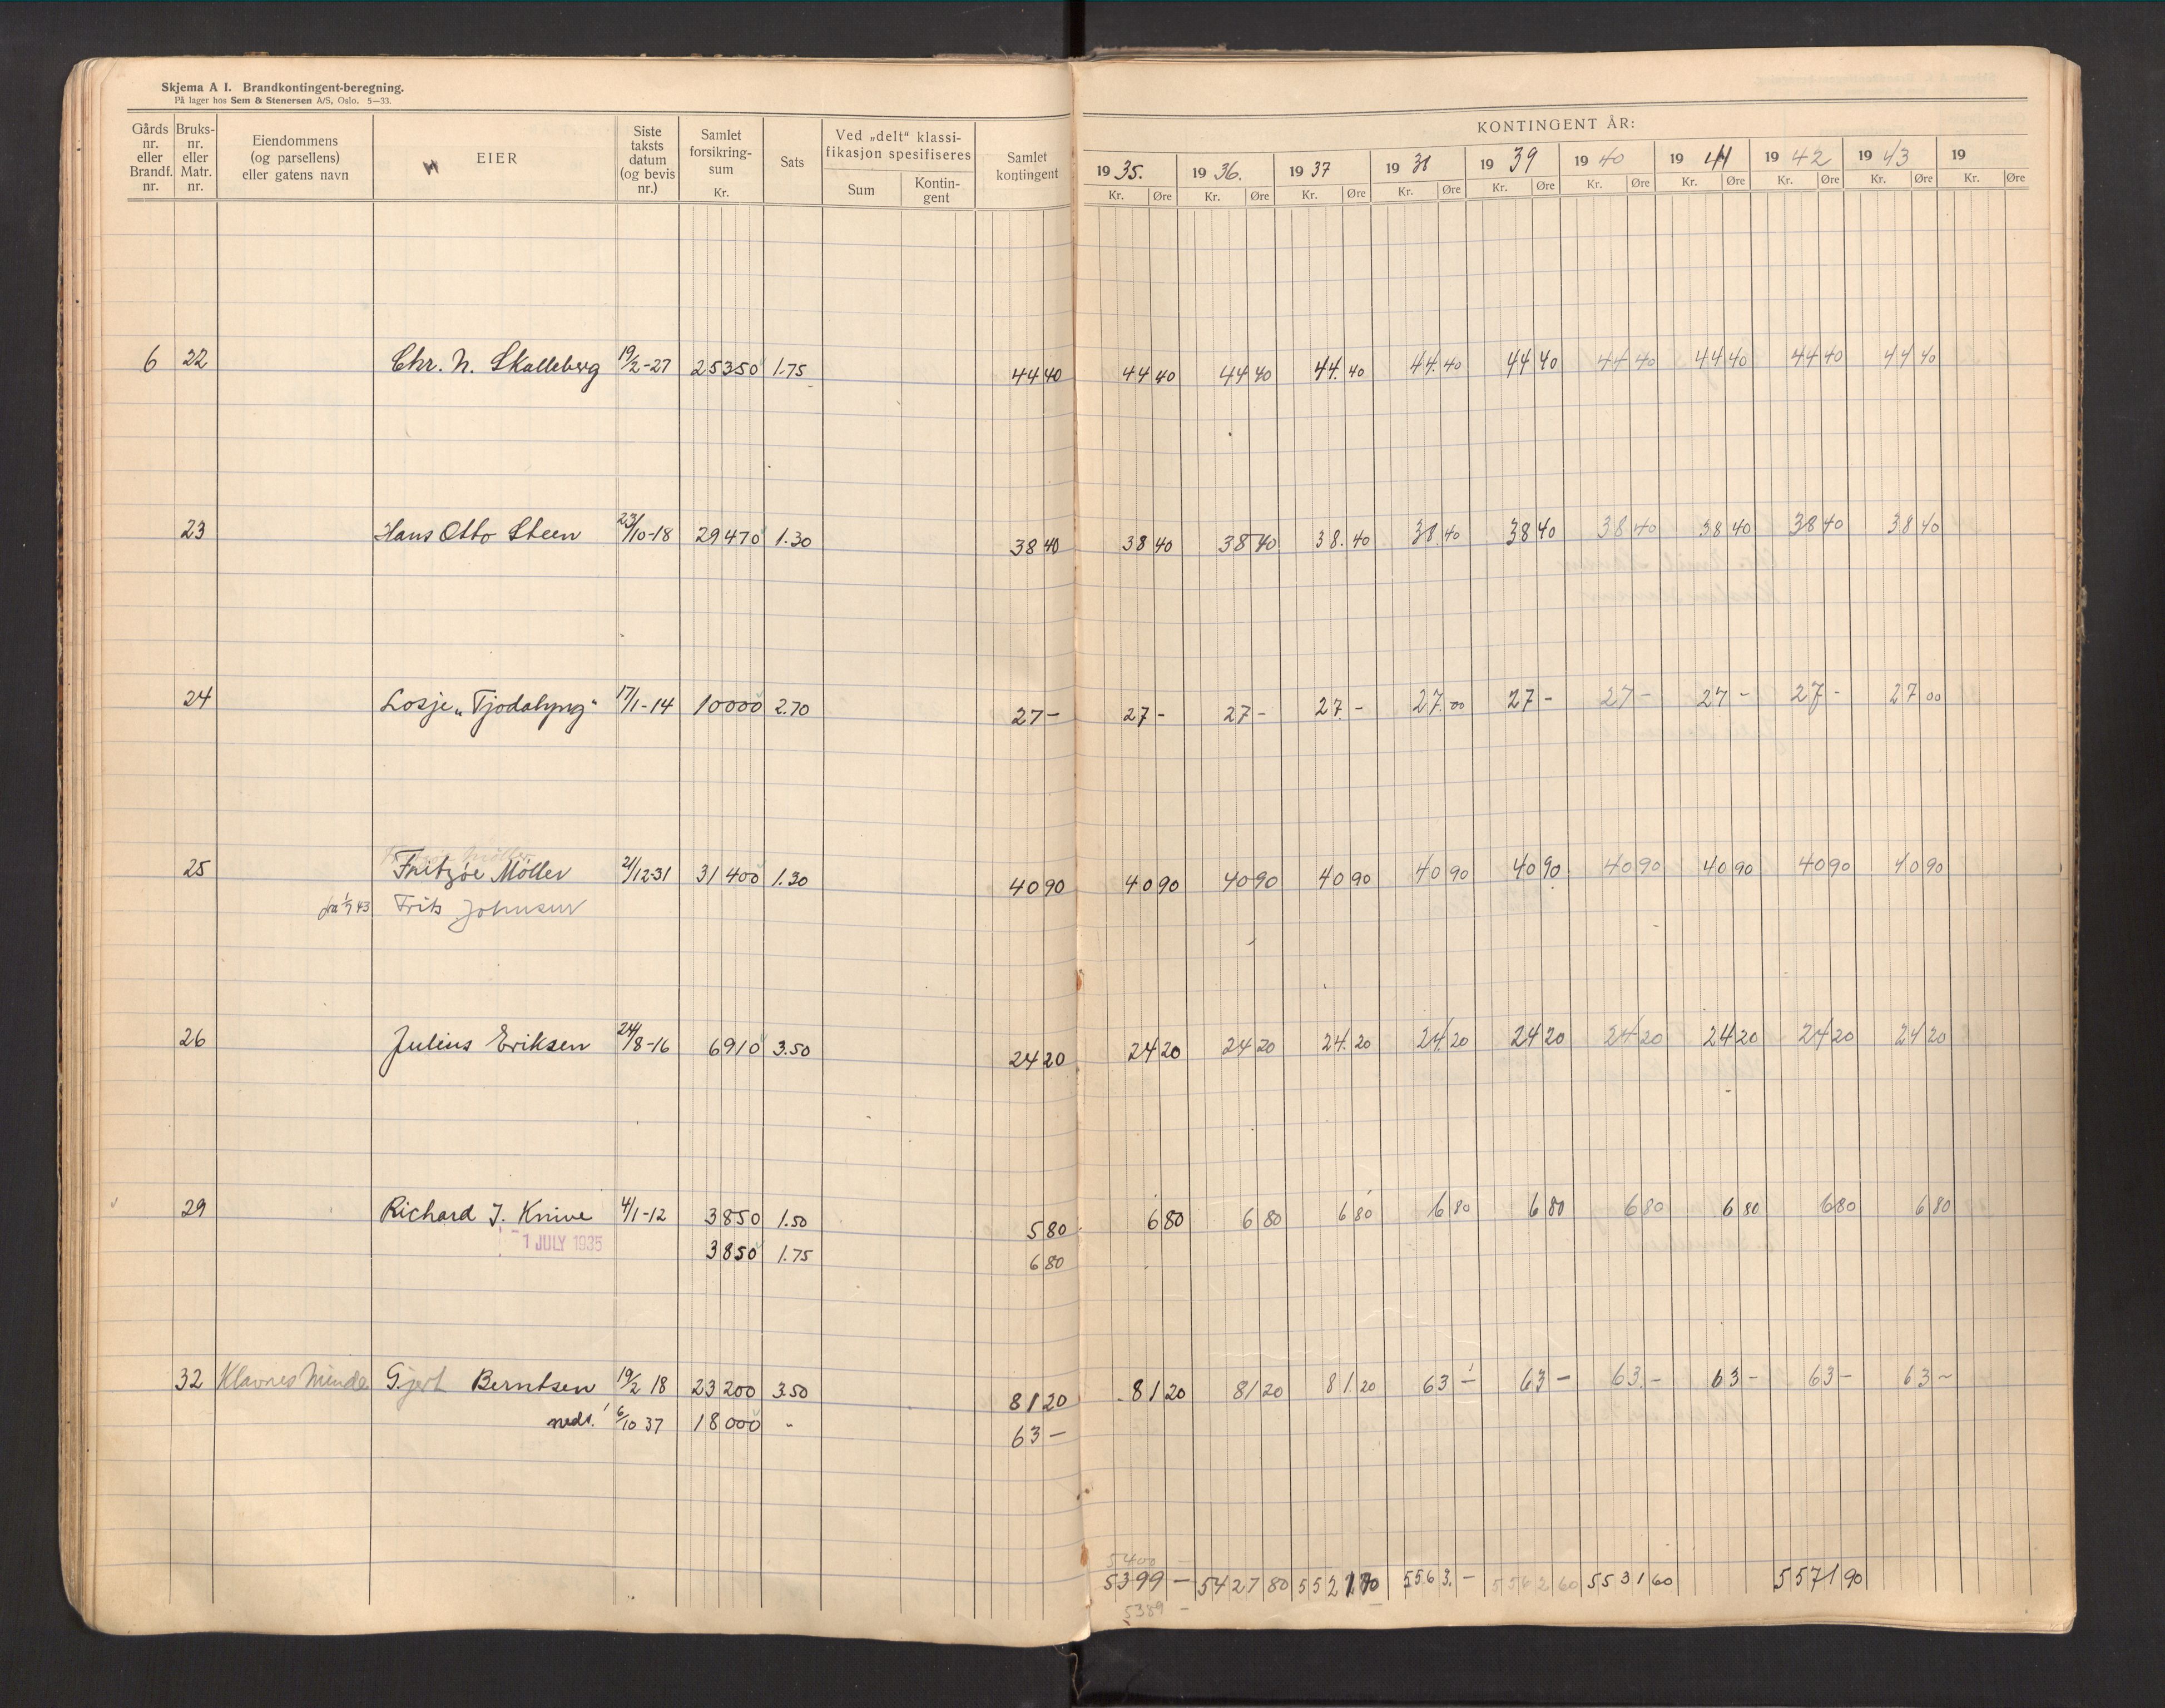 Skjema A I. Brandkontingent-beregning.
På lager hos Sem & Stenersen A/S, Oslo. 5—33.
Gårds nr. eller Brandf. nr. | Bruks- nr. eller Matr. nr. | Eiendommens (og parsellens) eller gatens navn | EIER | Siste taksts datum (og bevis nr.) | Samlet forsikring- sum Kr. | Sats | Ved „delt" klassi- fikasjon spesifiseres Sum Kontin- gent | Samlet kontingent
KONTINGENT ÅR:
1935. 1936. 1937 1938 1939 1940 1941 1942 1943 19
Kr. Øre Kr. Øre Kr. Øre Kr. Øre Kr. Øre Kr. Øre Kr. Øre Kr. Øre Kr. Øre Kr. Øre
6 22 Chr. N. Skalleberg 19/2-27 25350 1.75 44 40 44 40 44 40 44. 40 44. 40 44 40 44 40 44 40 44 40 44 40
23 Hans Otto Steen 23/10-18 29470 1.30 38 40 38 40 38 40 38. 40 38. 40 38 40 38 40 38 40 38 40 38 40
24 Losje „Tjodalyng" 17/1-14 10000 2.70 27 - 27 - 27 - 27. - 27. 00 27 - 27 - 27 - 27 - 27 00
25 Fritzøe Möller 21/12-31 31400 1.30 40 90 40 90 40 90 40 90 40 90 40 90 40 90 40 90 40 90 40 90
fra 1/7 43 Frits Johnsen
26 Julius Eriksen 24/8-16 6910 3.50 24 20 24 20 24 20 24. 20 24 20 24 20 24 20 24 20 24 20 24 20
29 Richard J. Knive 4/1-12 3850 1.50 5 80 6 80 6 80 6 80 6 80 6 80 6 80 6 80 6 80 6 80
-1 JULY 1935 3850 1.75 6 80
32 Klavnes Minde Gjert Berntsen 19/2 18 23200 3.50 81 20 81 20 81 20 81. 20 63 - 63 - 63. - 63 - 63 - 63 -
neds. 6/10 37 18000 " 63 -
5400
5399 - 5427 80 5563. - 5562 60 5531 60 5571 90
5389 -